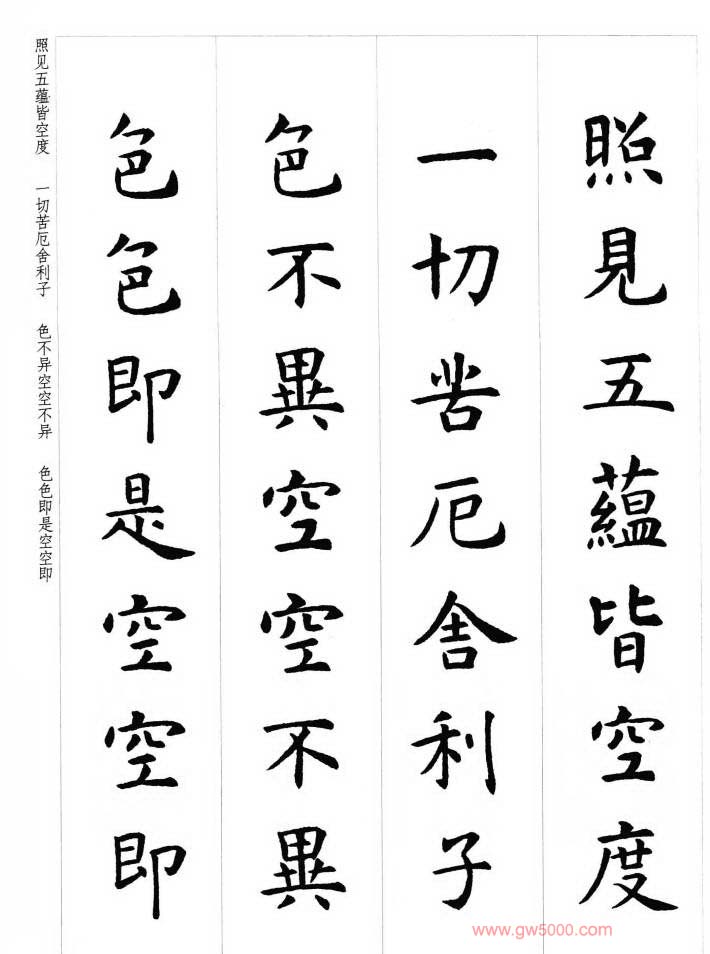 照見五蘊皆空度
一切苦厄舍利子
色不異空空不異
色色即是空空即
照见五蕴皆空度 一切苦厄舍利子 色不异空空不异 色色即是空空即
www.gw5000.com